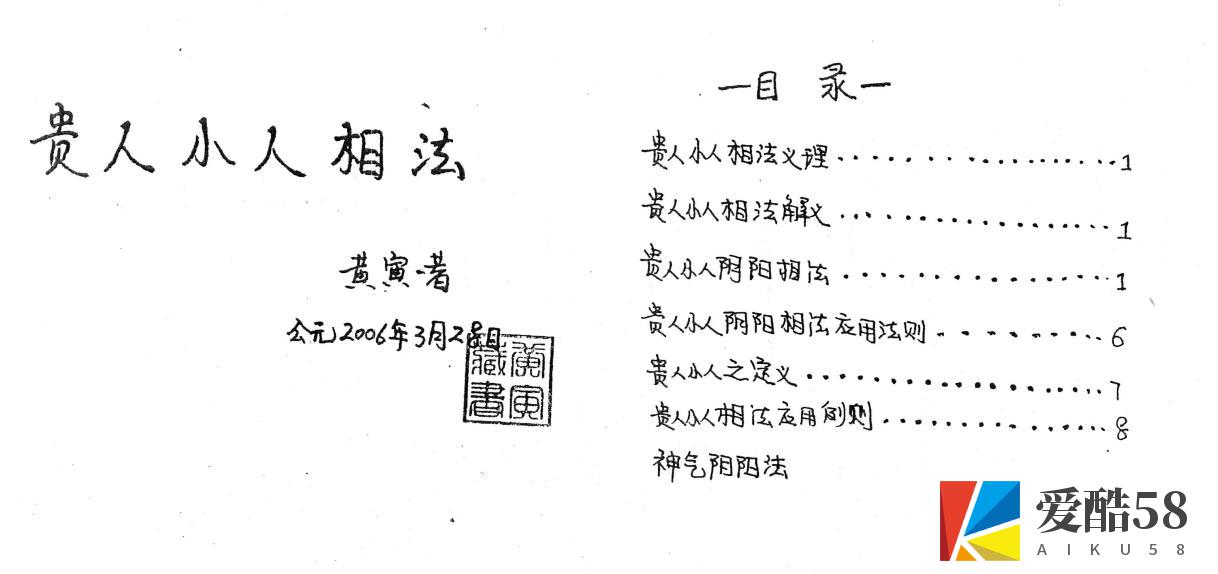 贵人小人相法
黄寅著
公元2006年3月28日
黄寅
藏書
—目 录—
贵人小人相法义理..................1
贵人小人相法解义..................1
贵人小人阴阳相法..................1
贵人小人阴阳相法应用法则..........6
贵人小人之定义..................7
贵人小人相法应用例则..................8
神气阴阳法
爱酷58
AIKU58